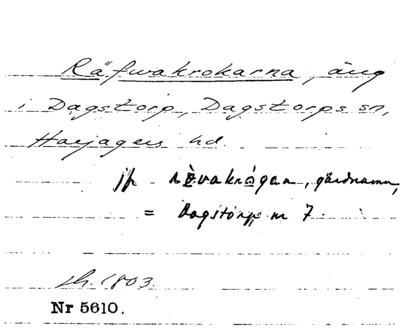 Räfwakrokarna, äng
i Dagstorp, Dagstorps sn,
Harjagers hd.
jfr rävakrågan, gårdnamn,
= Dagstorp nr 7
sk. 1803.
Nr 5610.